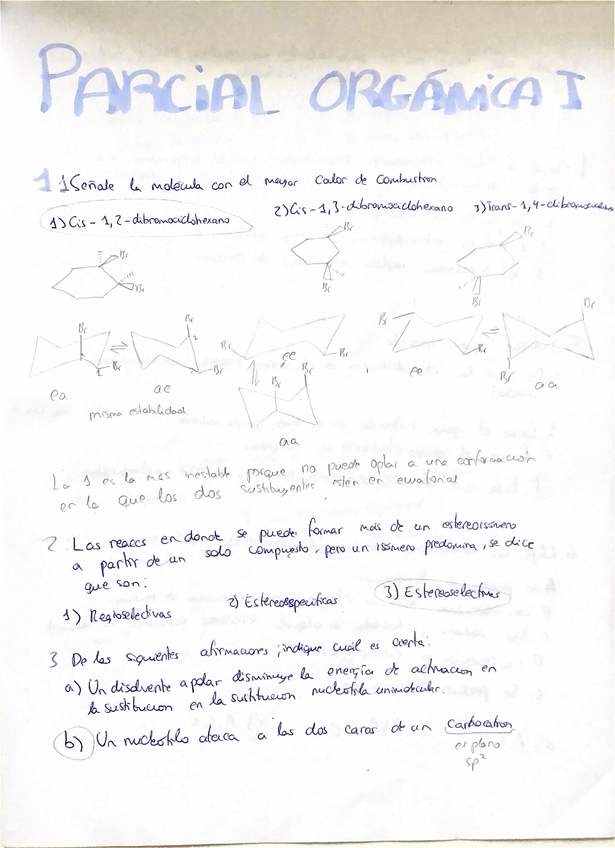 PARCIAL ORGÁNICA I
1 1 Señale la molecula con el mayor Calor de Combustion
1) Cis-1,2-dibromociclohexano 2) Cis-1,3-dibromociclohexano 3) Trans-1,4-dibromociclohexano
Br Br Br
Br Br Br
Br Br Br Br Br
Br Br Br Br Br
ea ae ee ee aa
misma estabilidad
Br Br
aa
La 1 es la mas inestable porque no puede optar a una conformación
en la que los dos sustituyentes esten en ecuatorial
2 Las reaccs en donde se puede formar más de un estereoisómero
a partir de un solo compuesto, pero un isómero predomina, se dice
que son:
1) Regioselectivas 2) Estereoespecificas 3) Estereoselectivas
3 De las siguientes afirmaciones, indique cuál es cierta:
a) Un disolvente apolar disminuye la energía de activacion en
la sustitucion en la sustitución nucleofila unimolecular.
b) Un nucleofilo ataca a las dos caras de un Carbocation
es plano
sp²